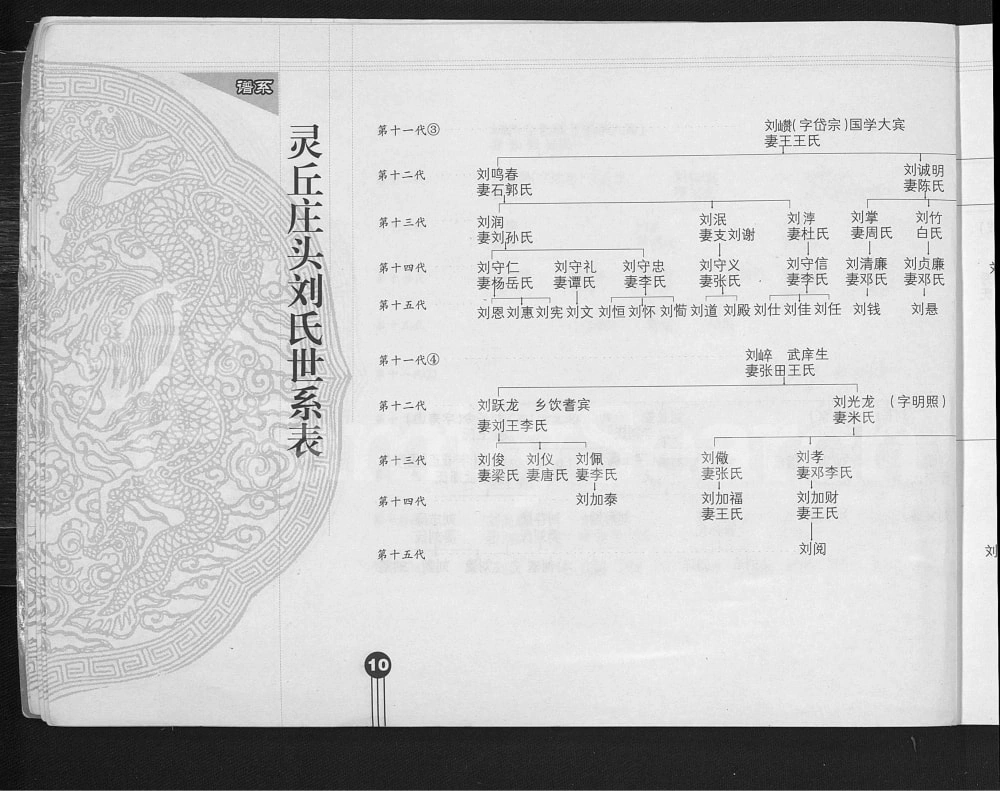 谱系
灵丘庄头刘氏世系表
第十一代③
刘巑(字岱宗)国学大宾
妻王王氏
第十二代
刘鸣春 刘诚明
妻石郭氏 妻陈氏
第十三代
刘润 刘泯 刘涬 刘掌 刘竹
妻刘孙氏 妻支刘谢 妻杜氏 妻周氏 白氏
第十四代
刘守仁 刘守礼 刘守忠 刘守义 刘守信 刘清廉 刘贞廉
妻杨岳氏 妻谭氏 妻李氏 妻张氏 妻李氏 妻邓氏 妻邓氏
第十五代
刘恩 刘惠 刘宪 刘文 刘恒 刘怀 刘 刘道 刘殿 刘仕 刘佳 刘任 刘钱 刘悬
第十一代④
刘崪 武庠生
妻张田王氏
第十二代
刘跃龙 乡饮耆宾 刘光龙 (字明照)
妻刘王李氏 妻米氏
第十三代
刘俊 刘仪 刘佩 刘儆 刘孝
妻梁氏 妻唐氏 妻李氏 妻张氏 妻邓李氏
第十四代
刘加泰 刘加福 刘加财
妻王氏 妻王氏
第十五代
刘阅
10